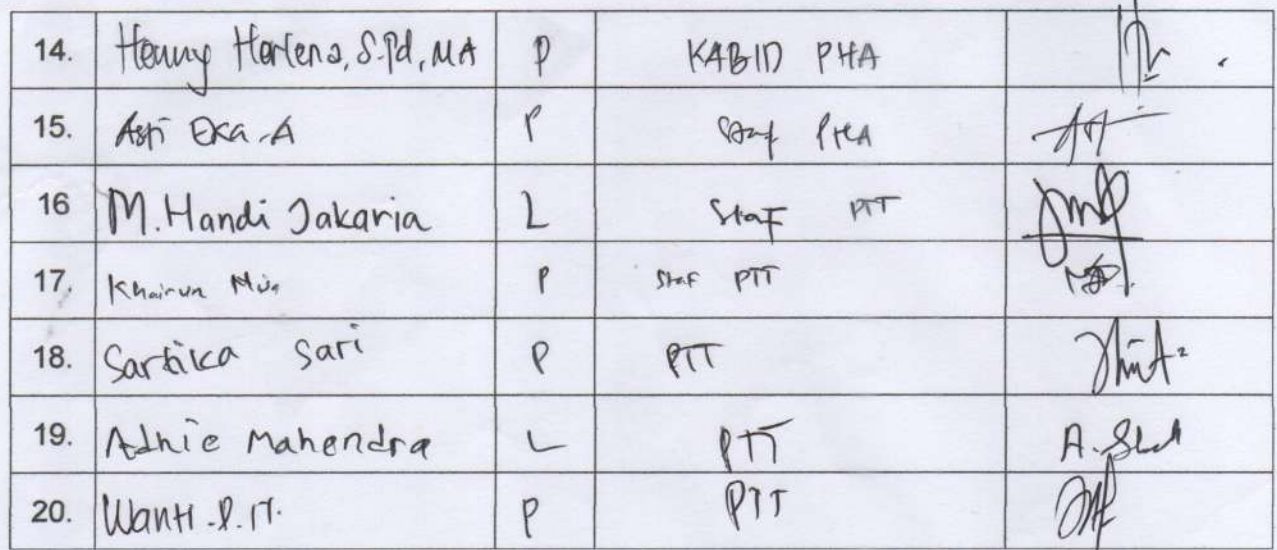 14. Henny Herlena, S.Pd, MA P KABID PHA
15. Asti Eka.A P Staf PHA
16 M.Handi Jakaria L Staf PTT
17. Khairun P Staf PTT
18. Sartika Sari P PTT
19. Adhie Mahendra L PTT
20. P PTT